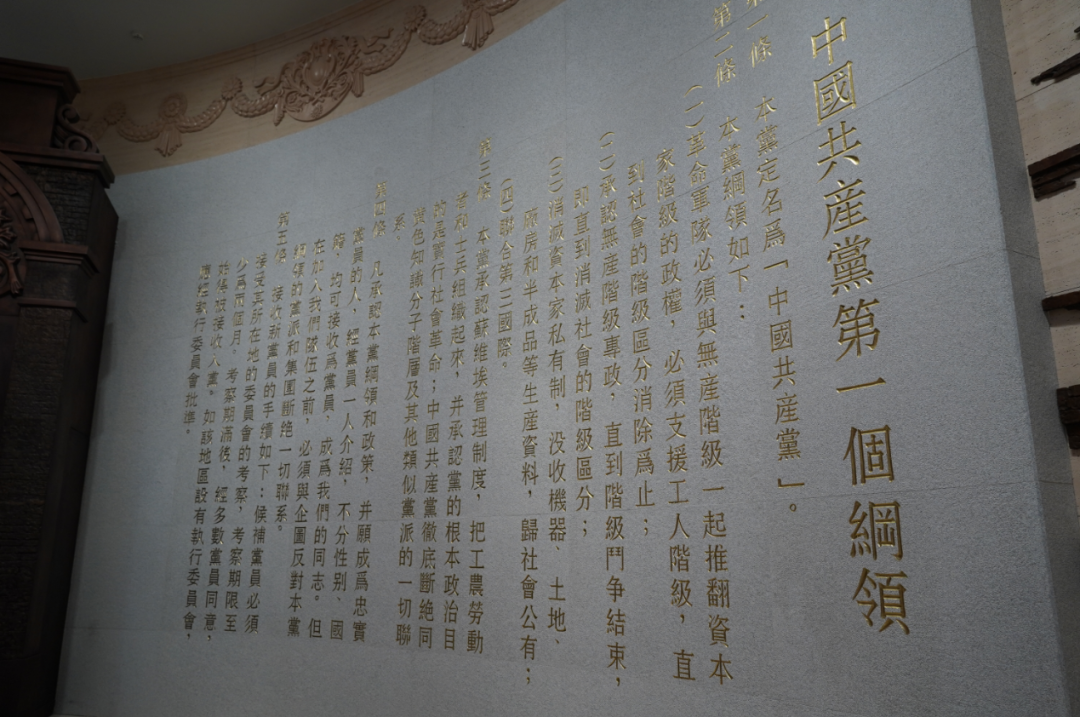 中國共産黨第一個綱領
第一條　本黨定名爲「中國共産黨」。
第二條　本黨綱領如下：
（一）革命軍隊必須與無産階級一起推翻資本
家階級的政權，必須支援工人階級，直
到社會的階級區分消除爲止；
（二）承認無産階級專政，直到階級鬥争結束，
即直到消滅社會的階級區分；
（三）消滅資本家私有制，没收機器、土地、
廠房和半成品等生産資料，歸社會公有；
（四）聯合第三國際。
第三條　本黨承認蘇維埃管理制度，把工農勞動
者和士兵組織起來，并承認黨的根本政治目
的是實行社會革命；中國共産黨徹底斷絶同
黄色知識分子階層及其他類似黨派的一切聯
系。
第四條　凡承認本黨綱領和政策，并願成爲忠實
黨員的人，經黨員一人介紹，不分性别、國
籍，均可接收爲黨員，成爲我們的同志。但
在加入我們隊伍之前，必須與企圖反對本黨
綱領的黨派和集團斷絶一切聯系。
第五條　接收新黨員的手續如下：候補黨員必須
接受其所在地的委員會的考察，考察期限至
少爲兩個月。考察期滿後，經多數黨員同意，
始得被接收入黨。如該地區設有執行委員會，
應經執行委員會批準。